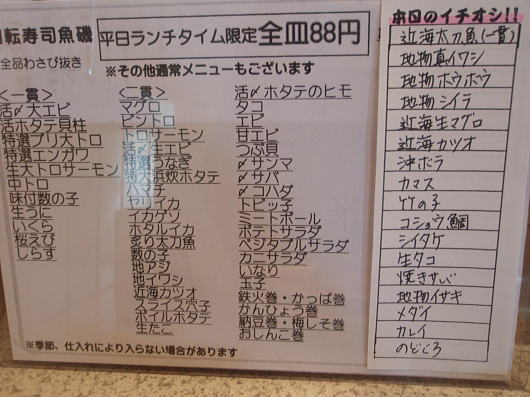 回転寿司魚磯
平日ランチタイム限定 全皿88円
全品わさび抜き
※その他通常メニューもございます
<一貫>
活〆大エビ
活ホタテ貝柱
特選ブリ大トロ
特選エンガワ
生大トロサーモン
中トロ
味付数の子
生うに
いくら
桜えび
しらす
<二貫>
マグロ
ビントロ
トロサーモン
活〆生エビ
特選うなぎ
特大浜炊ホタテ
ハマチ
ヤリイカ
イカゲソ
ホタルイカ
炙り太刀魚
数の子
地アジ
地イワシ
近海カツオ
スライス穴子
ボイルホタテ
生たこ
活〆ホタテのヒモ
タコ
エビ
甘エビ
つぶ貝
〆サンマ
〆サバ
〆コハダ
トビッ子
ミートボール
ポテトサラダ
ベジタブルサラダ
カニサラダ
いなり
玉子
鉄火巻・かっぱ巻
かんひょう巻
納豆巻・梅しそ巻
おしんこ巻
※季節、仕入れにより入らない場合があります
本日のイチオシ!!
近海太刀魚(一貫)
地物真イワシ
地物ホウボウ
地物シイラ
近海生マグロ
近海カツオ
沖ボラ
カマス
竹の子
コショウ鯛
シイタケ
生タコ
焼きさば
地物イサキ
メダイ
カレイ
のどぐろ